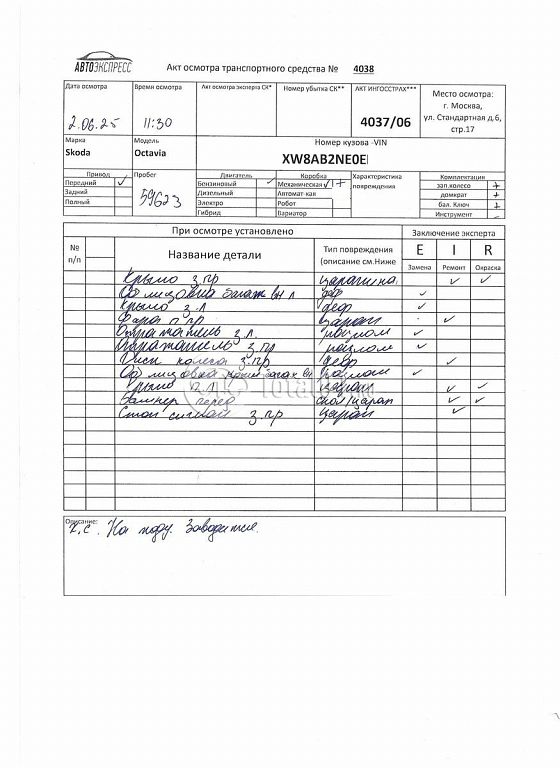 АВТОЭКСПРЕСС
Акт осмотра транспортного средства № 4038
Дата осмотра
2.06.25
Время осмотра
11:30
Акт осмотра эксперта СК*
Номер убытка СК**
АКТ ИНГОССТРАХ***
4037/06
Место осмотра:
г. Москва,
ул. Стандартная д.6,
стр.17
Марка
Skoda
Модель
Octavia
Номер кузова -VIN
XW8AB2NE0E
Привод
Передний ✓
Задний
Полный
Пробег
59623
Двигатель
Бензиновый ✓
Дизельный
Электро
Гибрид
Коробка
Механическая ✓ +
Автомат-кая
Робот
Вариатор
Характеристика
повреждения
Комплектация
зап.колесо +
домкрат +
бал. Ключ +
Инструмент
При осмотре установлено
Заключение эксперта
№
п/п
Название детали
Тип повреждения
(описание см.Ниже
E I R
Замена Ремонт Окраска
Крыло з.пр царапина ✓ ✓
Облицовка багаж вн л деф ✓
Крыло з.л деф ✓
Фара п пр царап ✓
Отражатель з.л. разлом ✓
Отражатель з.пр разлом ✓
Диск колеса з.пр деф ✓
Облицовка багаж вн разлом ✓
Крыло п.л царап ✓ ✓
Бампер перед скол/царап ✓ ✓
Стоп сигнал з.пр царап ✓
Total
Описание:
На ходу. Заводится.